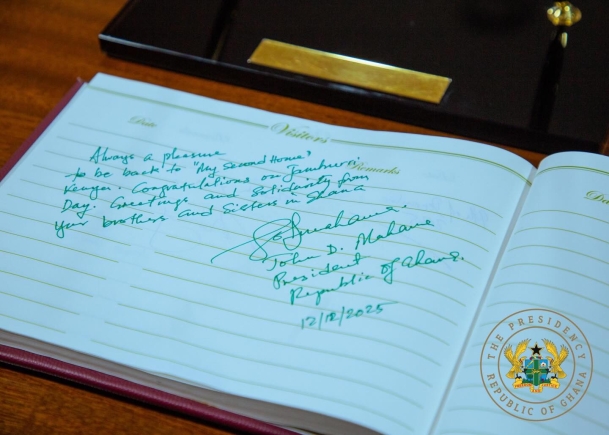 Date
Visitors
Remarks
Always a pleasure
to be back to "My Second Home"
Kenya. Congratulations on Jamhuri
Day. Greetings and Solidarity from
your brothers and Sisters in Ghana
John D. Mahama
President
Republic of Ghana.
12/12/2025
THE PRESIDENCY
REPUBLIC OF GHANA